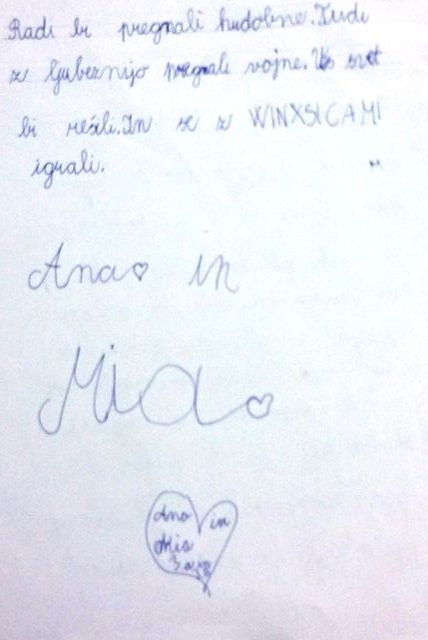 Radi bi pregnali hudobne. Tudi
z ljubeznijo pregnale vojne. Vs svet
bi rešili. In se z WINXSICAMI
igrali.
Ana in
Mia
Ana in
Mia